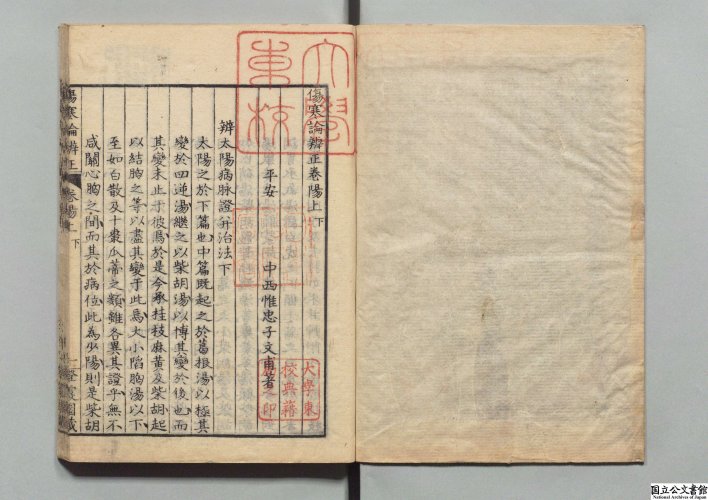 傷寒論辨正卷陽上下
平安 中西惟忠子文甫著
辨太陽病脉證并治法下
太陽之於下篇也中篇既起之於葛根湯以極其
變於四逆湯繼之以柴胡湯以博其變於後也而
其變未止于彼焉於是今承桂枝麻黄及柴胡起
以結胸之等以盡其變于此焉大小陷胸湯以下
至如白散及十棗瓜蒂之類雖各異其證乎無不
咸關心胸之間而其於病位此為少陽則是柴胡
傷寒論辨正 卷陽上 下
大學東校典籍
國立公文書館
National Archives of Japan